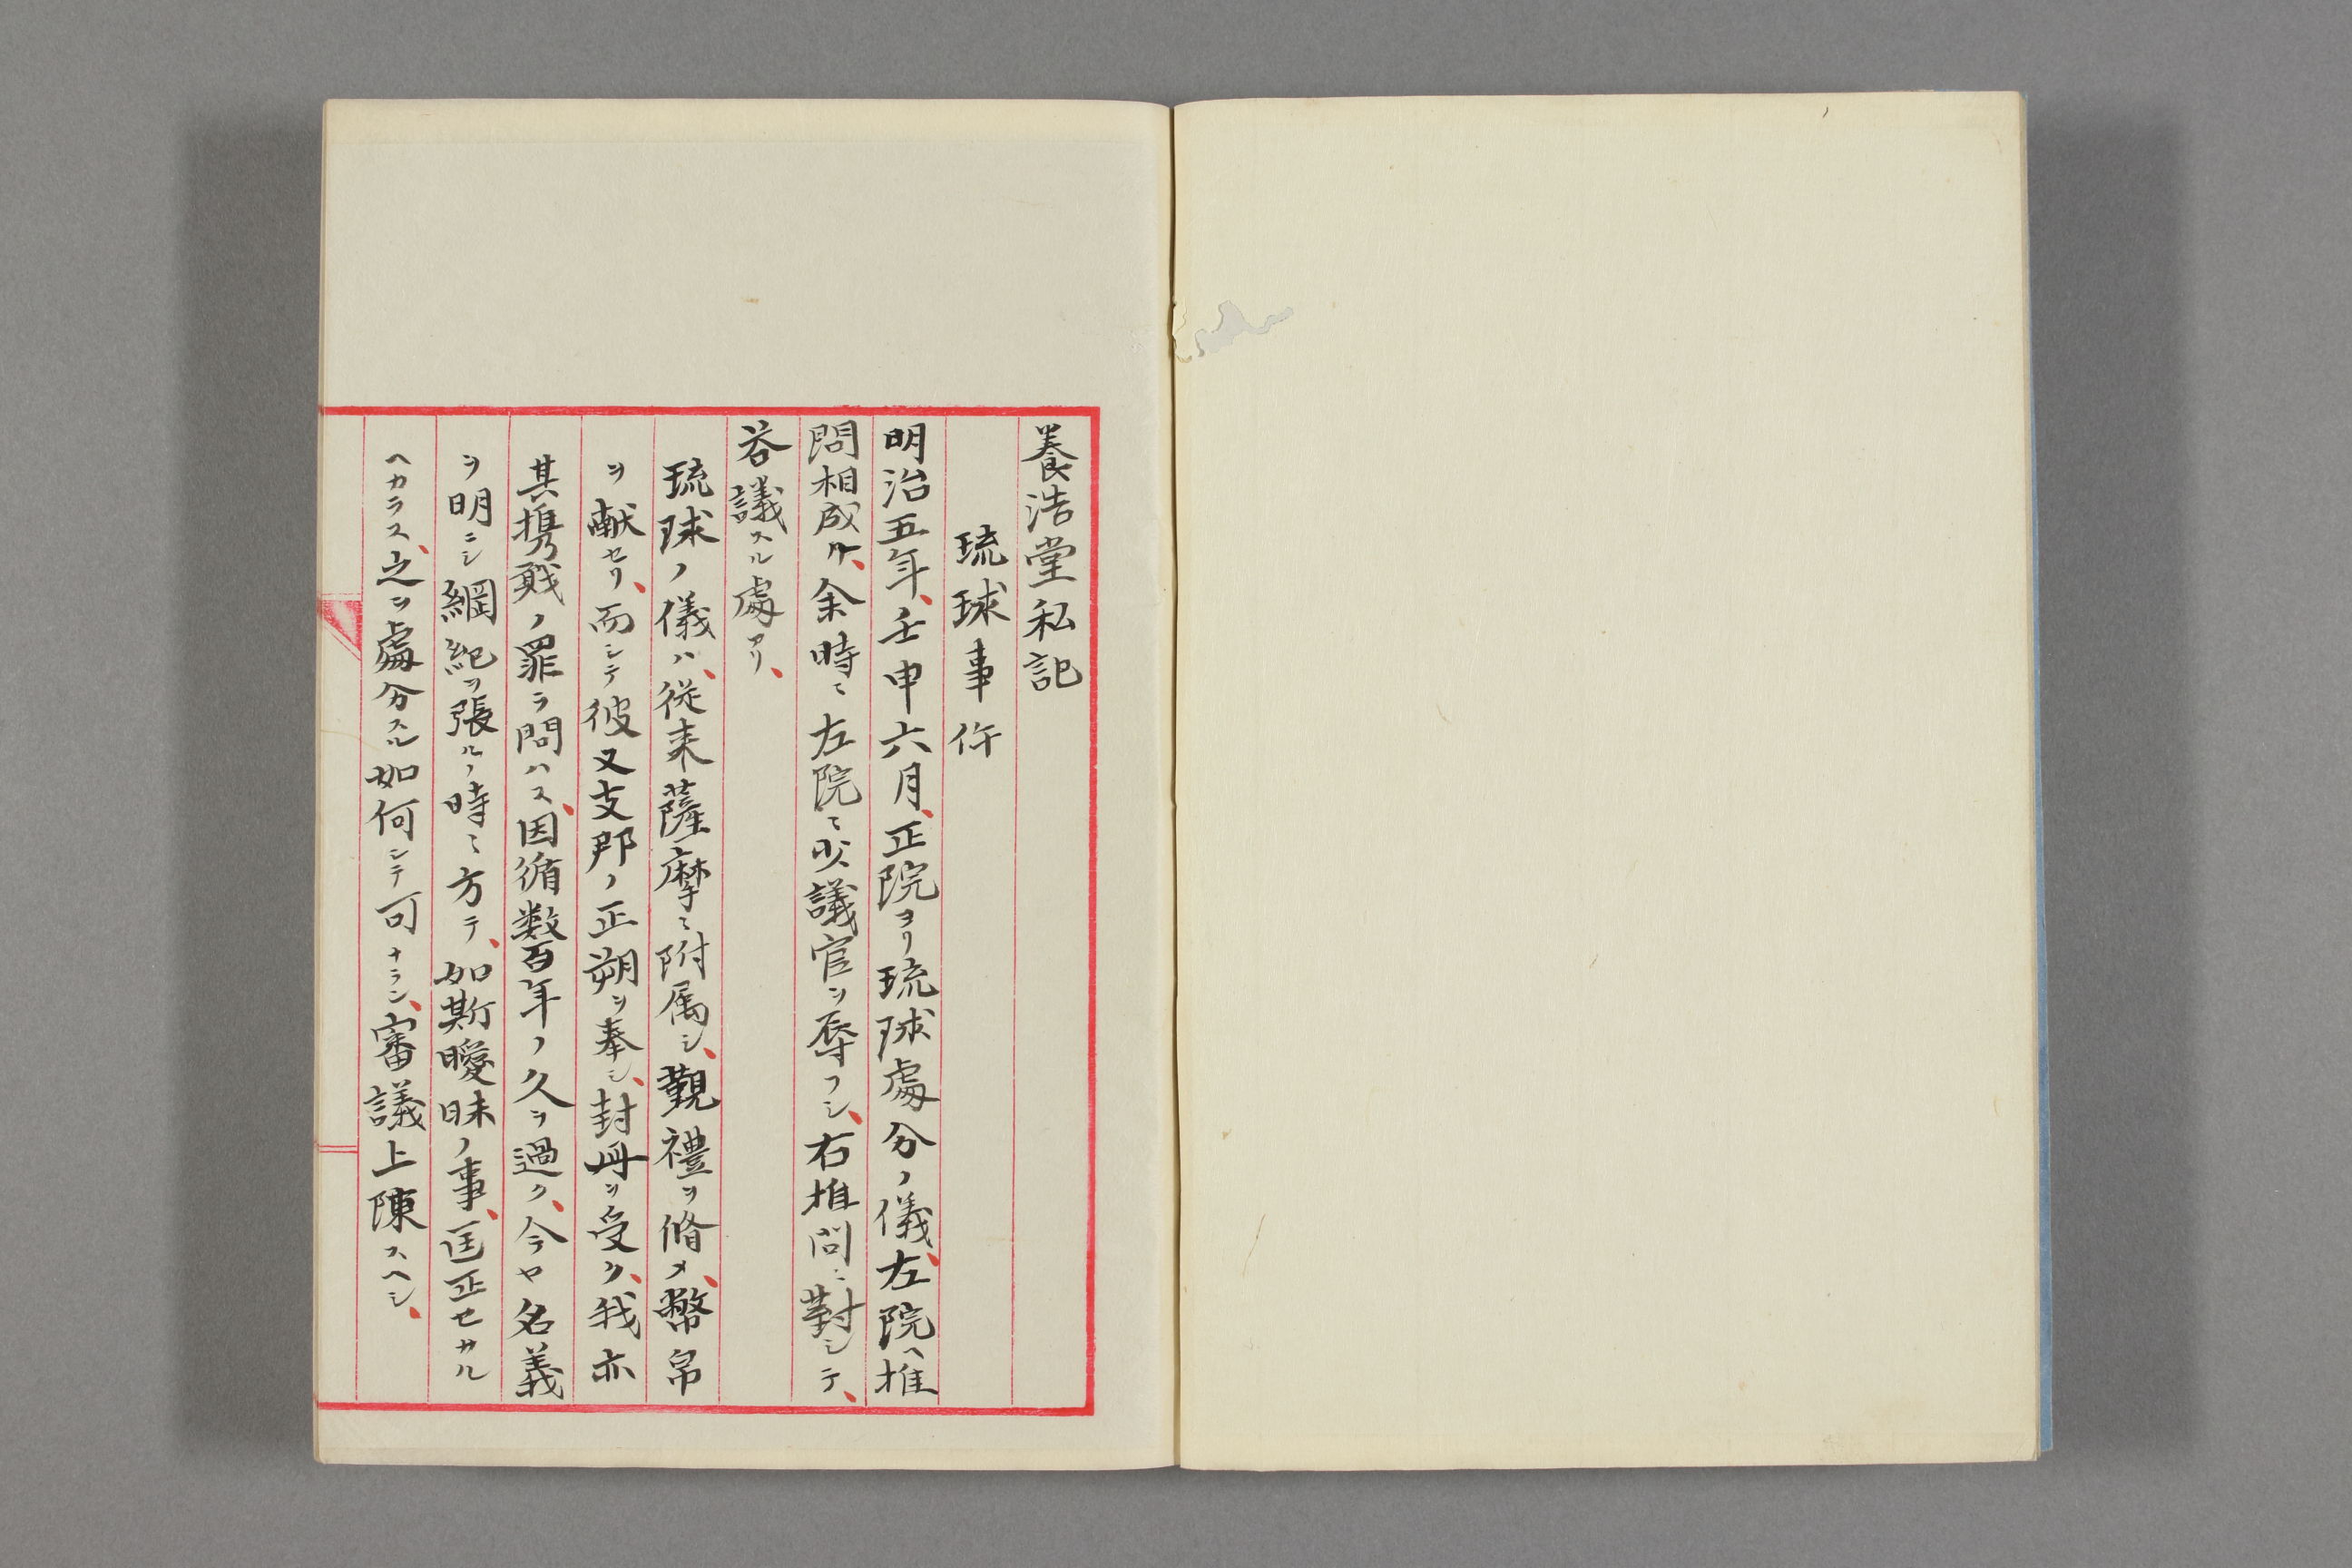 養浩堂私記
琉球事件
明治五年、壬申六月、正院ヨリ琉球處分ノ儀、左院ヘ推
問相成ル、余時ニ左院ニ少議官ヲ辱フシ、右推問ニ對シテ、
荅議スル處アリ、
琉球ノ儀ハ、従来薩摩ニ附属シ、覲禮ヲ脩メ、幣帛
ヲ献セリ、而シテ彼又支那ノ正朔ヲ奉シ、封冊ヲ受ク、我亦
其携貳ノ罪ヲ問ハス、因循数百年ノ久ヲ過ク、今ヤ名義
ヲ明ニシ綱紀ヲ張ルノ時ニ方テ、如斯曖昧ノ事、匡正セサル
ヘカラス、之ヲ處分スル如何シテ可ナラン、審議上陳スヘシ、